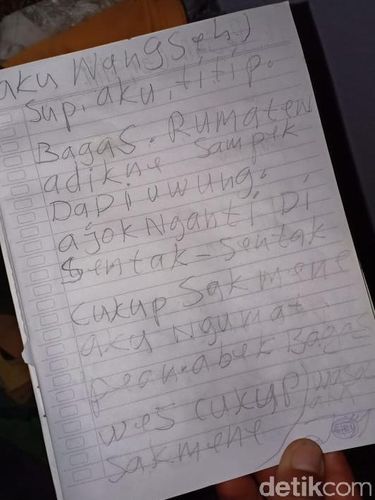 aku Wangseh.)
Sup. aku, titip.
Bagas. Rumaten
adikne sampek
Dadi uwung.
ajok Nganti Di
Sentak - Sentak
Cukup Sakmene
aku Ngumat
pean. abek Bagas
wes cukup
sakmene
detikcom